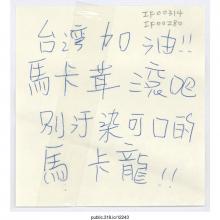 IF00314
IF00280
台灣加油!!
馬卡茸滾吧
別汙染可口的
馬卡龍!!
public.318.io/12243